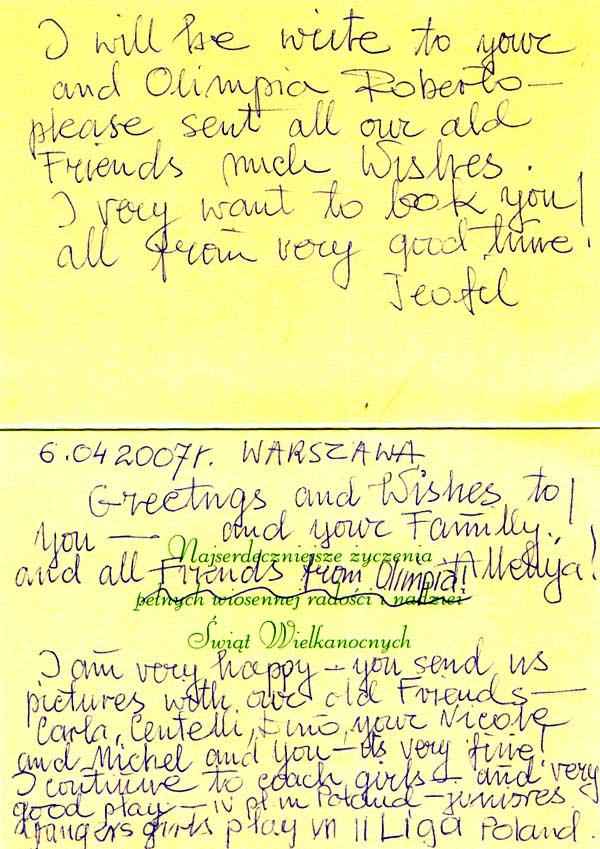 I will be write to your
and Olimpia Roberto—
please sent all our old
Friends much Wishes.
I very want to book you
all from very good time!
Teofil
6.04 2007r. WARSZAWA
Greetngs and Wishes to
you — and your Familly!
Najserdeczniejsze życzenia
and all Friends from Olimpia! Alleluja!
pełnych wiosennej radości i nadziei
Świąt Wielkanocnych
I am very happy – you send us
pictures with our old Friends—
Carla, Centelli, Dino, your Nicole
and Michel and you – its very fine!
I continue to coach girls – and very
good play – IV pl in Poland – juniores
girls play in II Liga Poland.